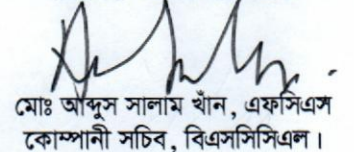 মোঃ আব্দুস সালাম খাঁন, এফসিএস
কোম্পানী সচিব, বিএসসিসিএল।